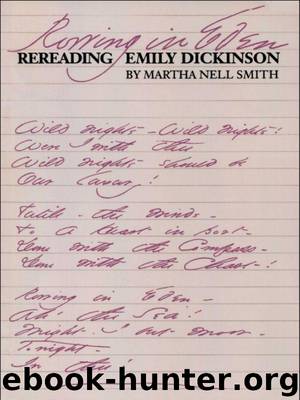 Rowing in Eden
REREADING EMILY DICKINSON
BY MARTHA NELL SMITH
Wild nights - Wild nights!
Were I with thee
Wild nights should be
Our luxury!
Futile - the winds -
To a Heart in port -
Done with the Compass -
Done with the Chart!
Rowing in Eden -
Ah! the Sea!
Might I but moor -
Tonight -
In thee!
ebook-hunter.org